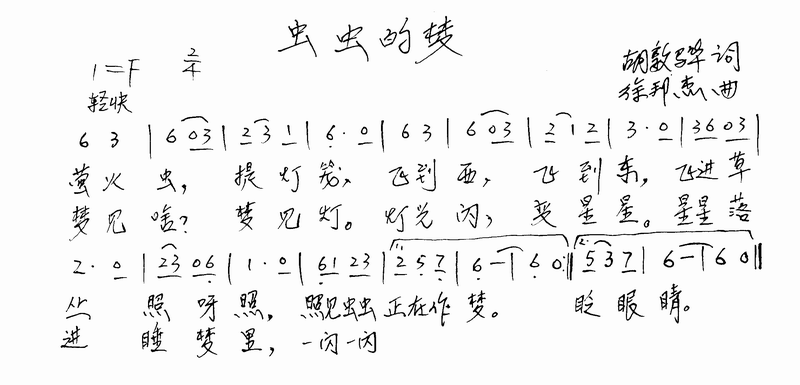 虫虫的梦
1=F 2/4
胡敦骅词
轻快
徐邦杰曲
6 3 | 6 03 | 23 1 | 6· 0 | 6 3 | 6 03 | 21 2 | 3· 0 | 36 03 |
萤火虫，提灯笼，飞到西，飞到东，飞进草
梦见啥？梦见灯。灯光闪，变星星。星星落
2· 0 | 23 06 | 1· 0 | 61 23 | 1. 2 5 7 | 6 — | 6 0 :‖ 2. 5 3 7 | 6 — | 6 0 ‖
丛 照呀照，照见虫虫正在作梦。 眨眼睛。
进 睡梦里，一闪一闪